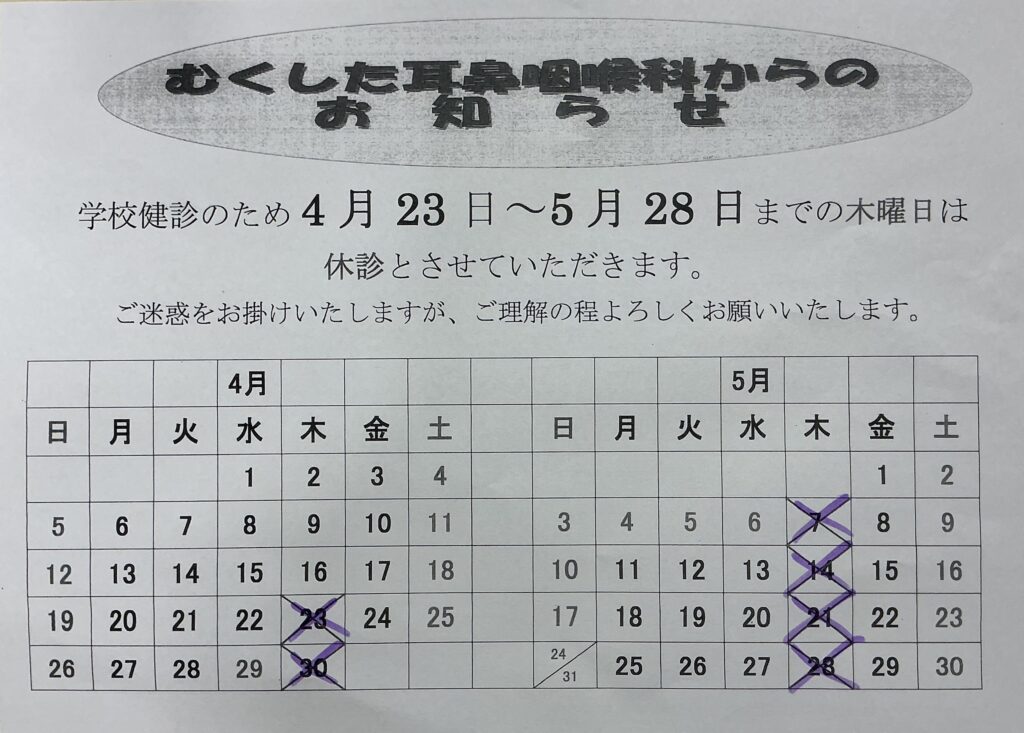 むくした耳鼻咽喉科からの
お知らせ
学校健診のため4月23日～5月28日までの木曜日は
休診とさせていただきます。
ご迷惑をお掛けいたしますが、ご理解の程よろしくお願いいたします。
4月 5月
日 月 火 水 木 金 土 日 月 火 水 木 金 土
1 2 3 4 1 2
5 6 7 8 9 10 11 3 4 5 6 7 8 9
12 13 14 15 16 17 18 10 11 12 13 14 15 16
19 20 21 22 23 24 25 17 18 19 20 21 22 23
26 27 28 29 30 24/31 25 26 27 28 29 30